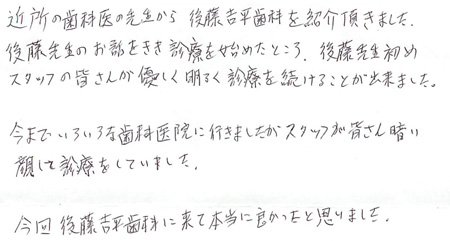 近所の歯科医の先生から 後藤吉平歯科を紹介頂きました.
後藤先生のお話をきき診療を始めたところ. 後藤先生初め
スタッフの皆さんが優しく明るく診療を続けることが出来ました。
今までいろいろな歯科医院に行きましたがスタッフが皆さん暗い
顔して診療をしていました.
今回後藤吉平歯科に来て本当に良かったと思いました.